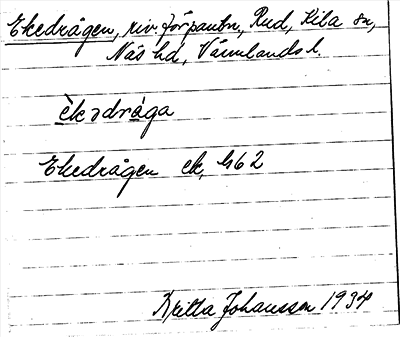 Ekedrågen, riv. förpantn., Rud, Kila sn,
Näs hd, Värmlands l.
èkədråga
Ekedrågen ek, 462
Britta Johansson 1934